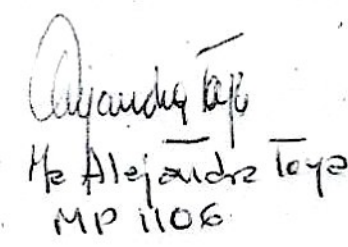 Alejandra Toya
Ma Alejandra Toya
MP 1106